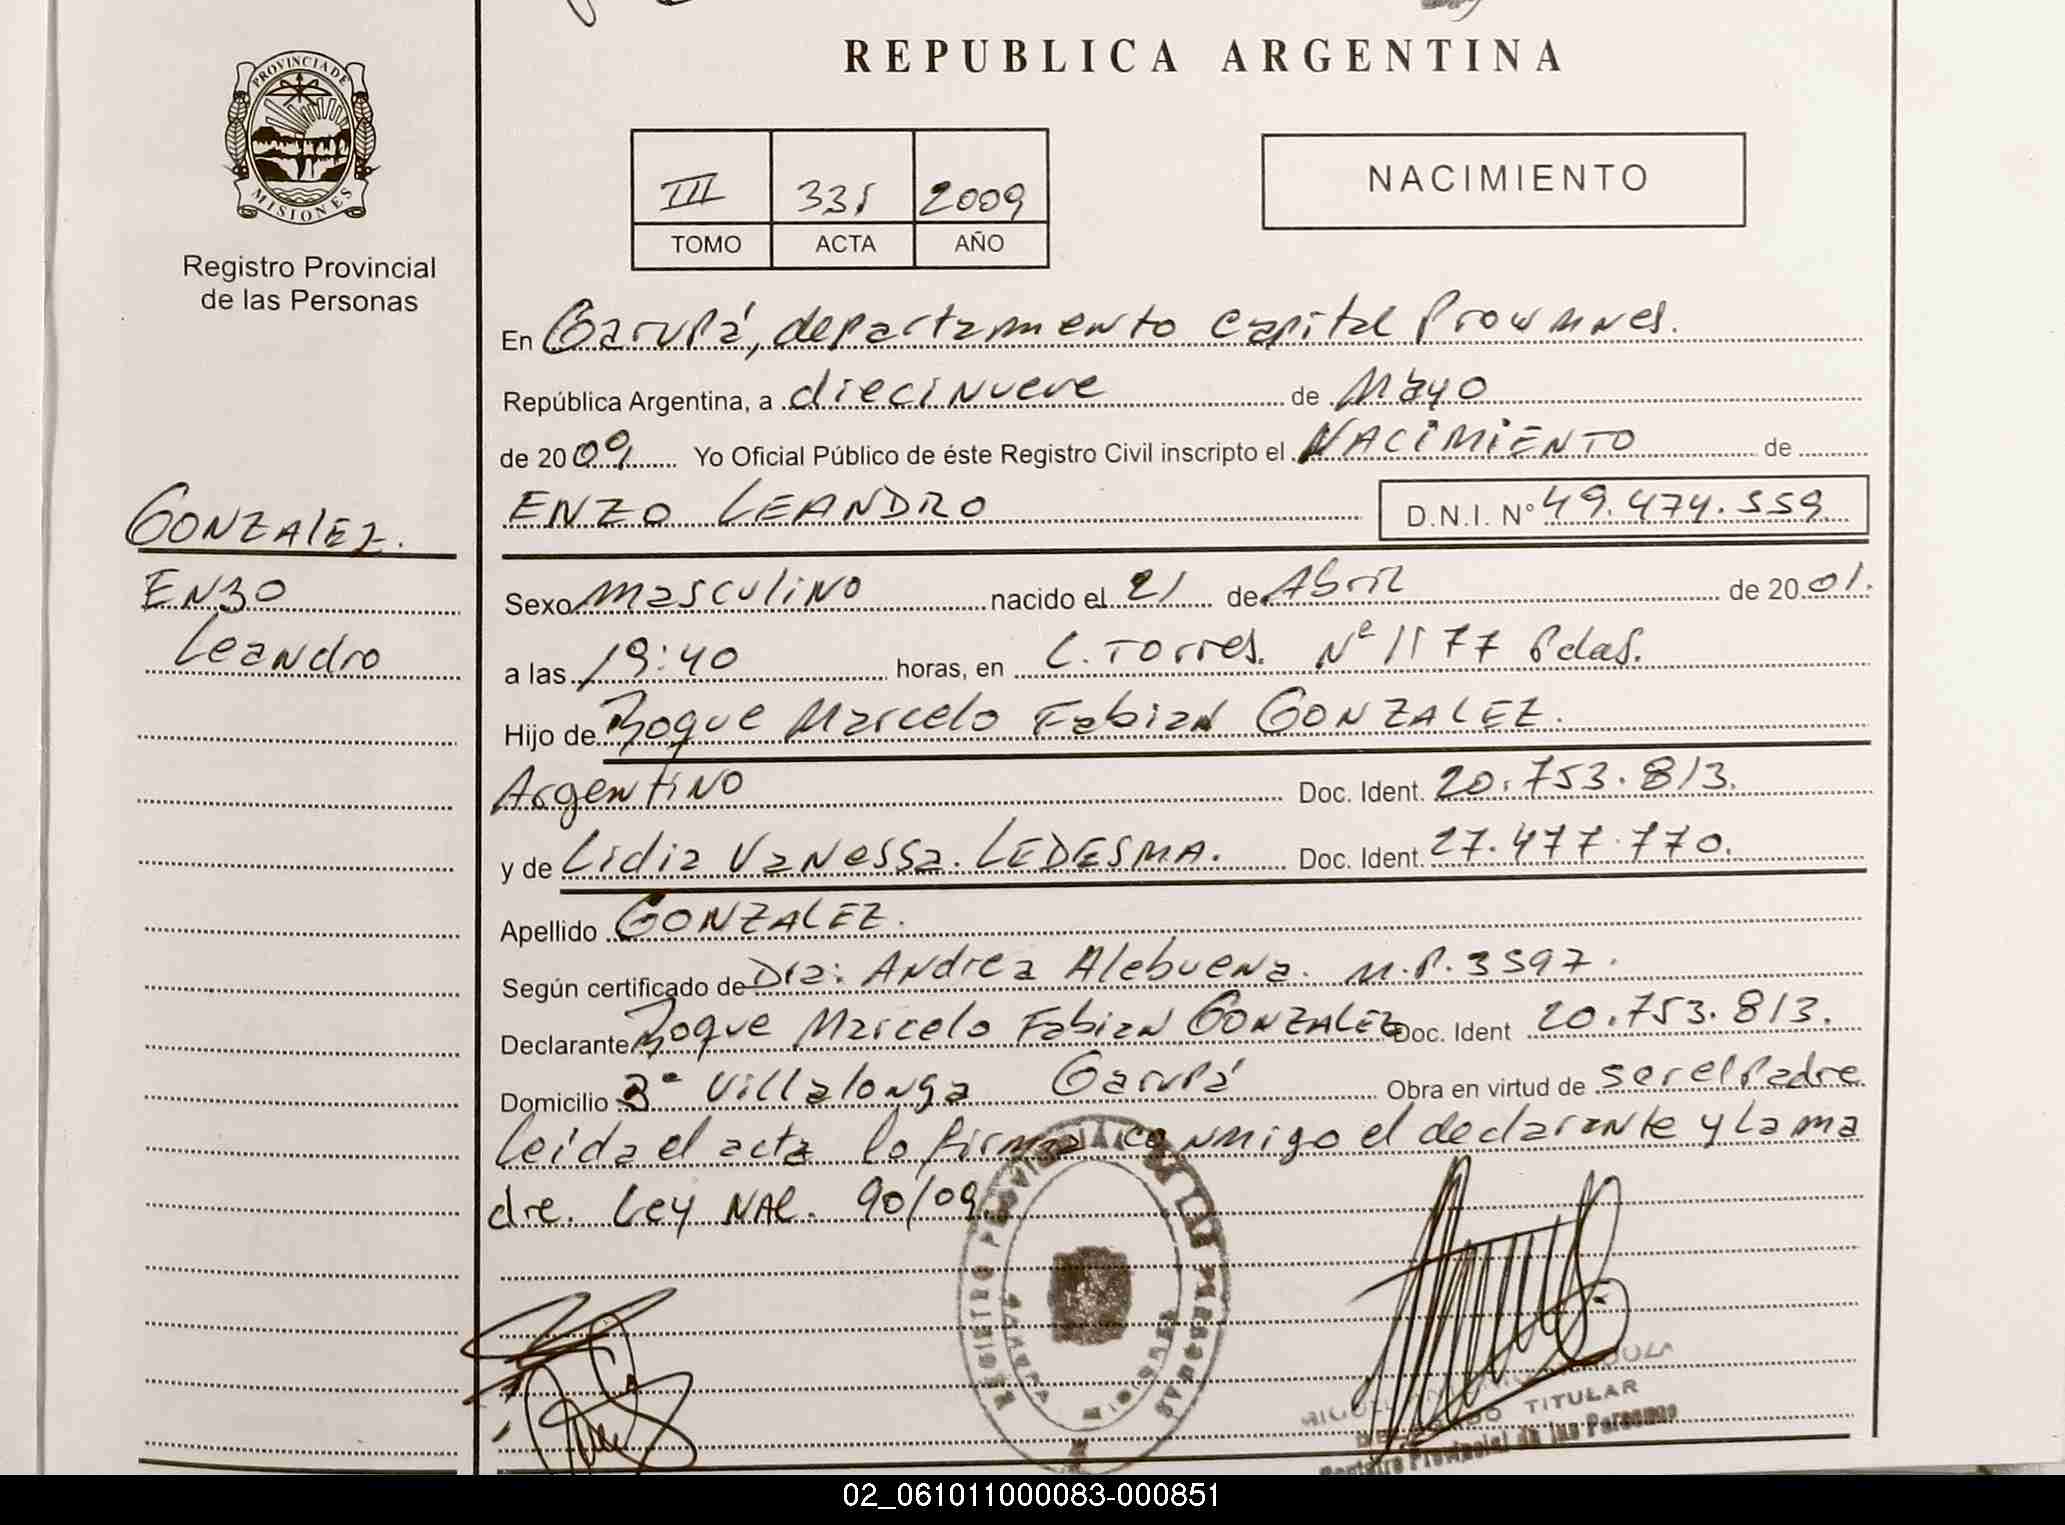 REPUBLICA ARGENTINA
PROVINCIA DE
MISIONES
Registro Provincial
de las Personas
III 331 2009
TOMO ACTA AÑO
NACIMIENTO
En Garupá, departamento Capital
República Argentina, a diecinueve de Mayo
de 2009 Yo Oficial Público de éste Registro Civil inscripto el NACIMIENTO de
ENZO LEANDRO D.N.I. Nº 49.474.559
GONZALEZ.
Enzo
Leandro
Sexo masculino nacido el 21 de Abril de 2001.
a las 19:40 horas, en L. Torres. Nº 1177 Pdas.
Hijo de Roque Marcelo Fabian GONZALEZ.
Argentino Doc. Ident. 20.753.813.
y de Lidia Vanessa. LEDESMA. Doc. Ident. 27.477.770.
Apellido GONZALEZ.
Según certificado de Dra: Andrea Alebuena. M.P. 3597.
Declarante Roque Marcelo Fabian GONZALEZ Doc. Ident 20.753.813.
Domicilio Bº Villalonga Garupá Obra en virtud de ser el Padre
leida el acta la firma conmigo el declarante y la ma
dre. Ley NAL. 90/09.
REGISTRO PROVINCIAL DE LAS PERSONAS
TITULAR
Registro Provincial de las Personas
02_061011000083-000851